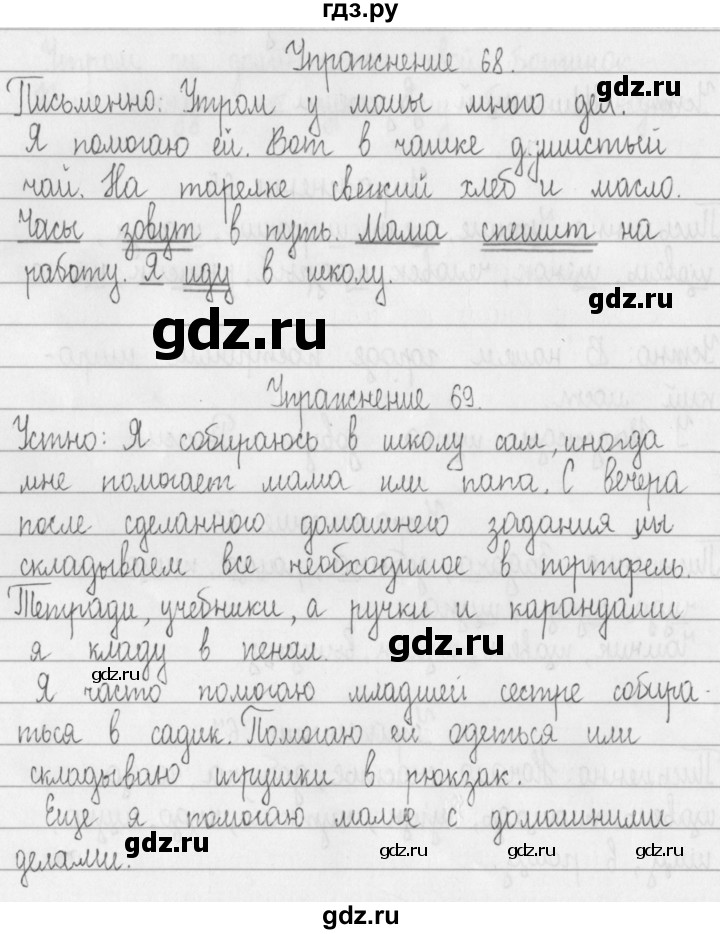 гдз.ру
Упражнение 68.
gdz.ru
Письменно: Утром у мамы много дел.
Я помогаю ей. Вот в чашке душистый
чай. На тарелке свежий хлеб и масло.
Часы зовут в путь. Мама спешит на
работу. Я иду в школу.
gdz.ru
gdz.ru
Упражнение 69.
Устно: Я собираюсь в школу сам, иногда
мне помогает мама или папа. С вечера
после сделанного домашнего задания мы
складываем все необходимое в портфель.
Тетради, учебники, а ручки и карандаши
я кладу в пенал.
gdz.ru
gdz.ru
Я часто помогаю младшей сестре собира-
ться в садик. Помогаю ей одеться или
складываю игрушки в рюкзак.
Еще я помогаю маме с домашними
делами.
gdz.ru
gdz.ru
gdz.ru
gdz.ru
gdz.ru